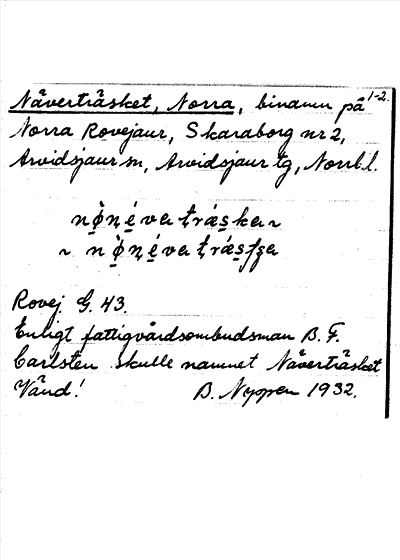 Näverträsket, Norra, binamn på 1-2.
Norra Rovejaur, Skaraborg nr 2,
Arvidsjaur sn, Arvidsjaur tg, Norrb. l.
Rovej. G. 43.
Enligt fattigvårdsombudsman B. F.
Carlsten skulle namnet Näverträsket
Vänd! B. Nyppen 1932.